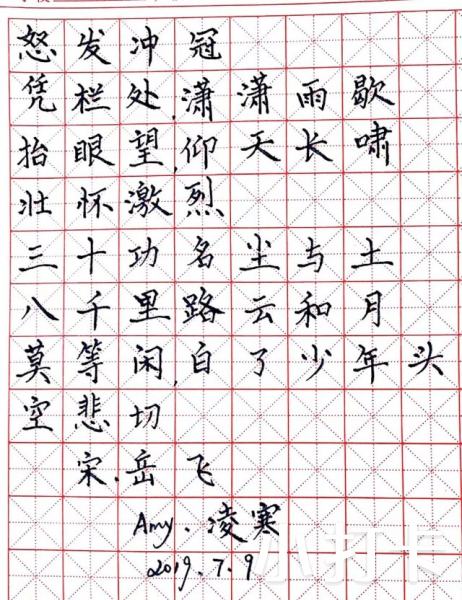 怒发冲冠
凭栏处,潇潇雨歇
抬眼望,仰天长啸
壮怀激烈
三十功名尘与土
八千里路云和月
莫等闲,白了少年头
空悲切
宋.岳飞
Amy.凌寒
2019.7.9
小打卡